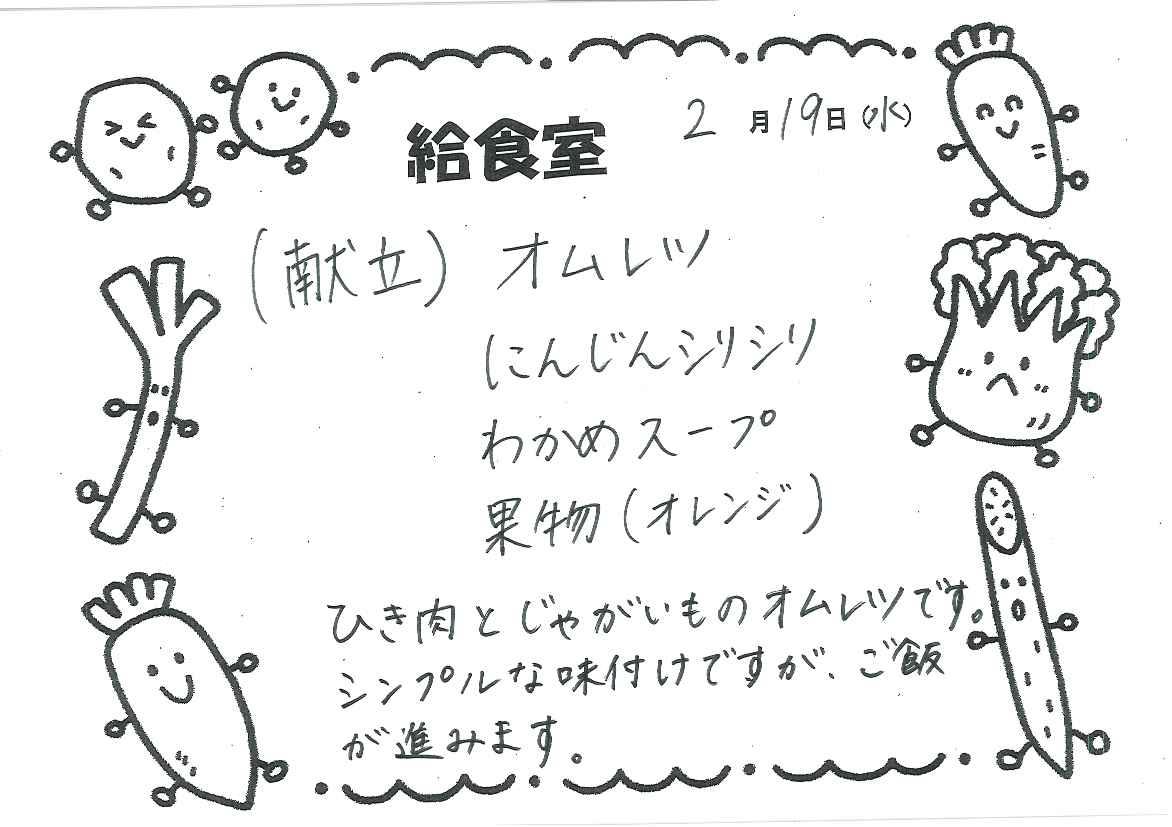 給食室
2月19日(水)
(献立) オムレツ
にんじんシリシリ
わかめスープ
果物(オレンジ)
ひき肉とじゃがいものオムレツです。
シンプルな味付けですが、ご飯
が進みます。